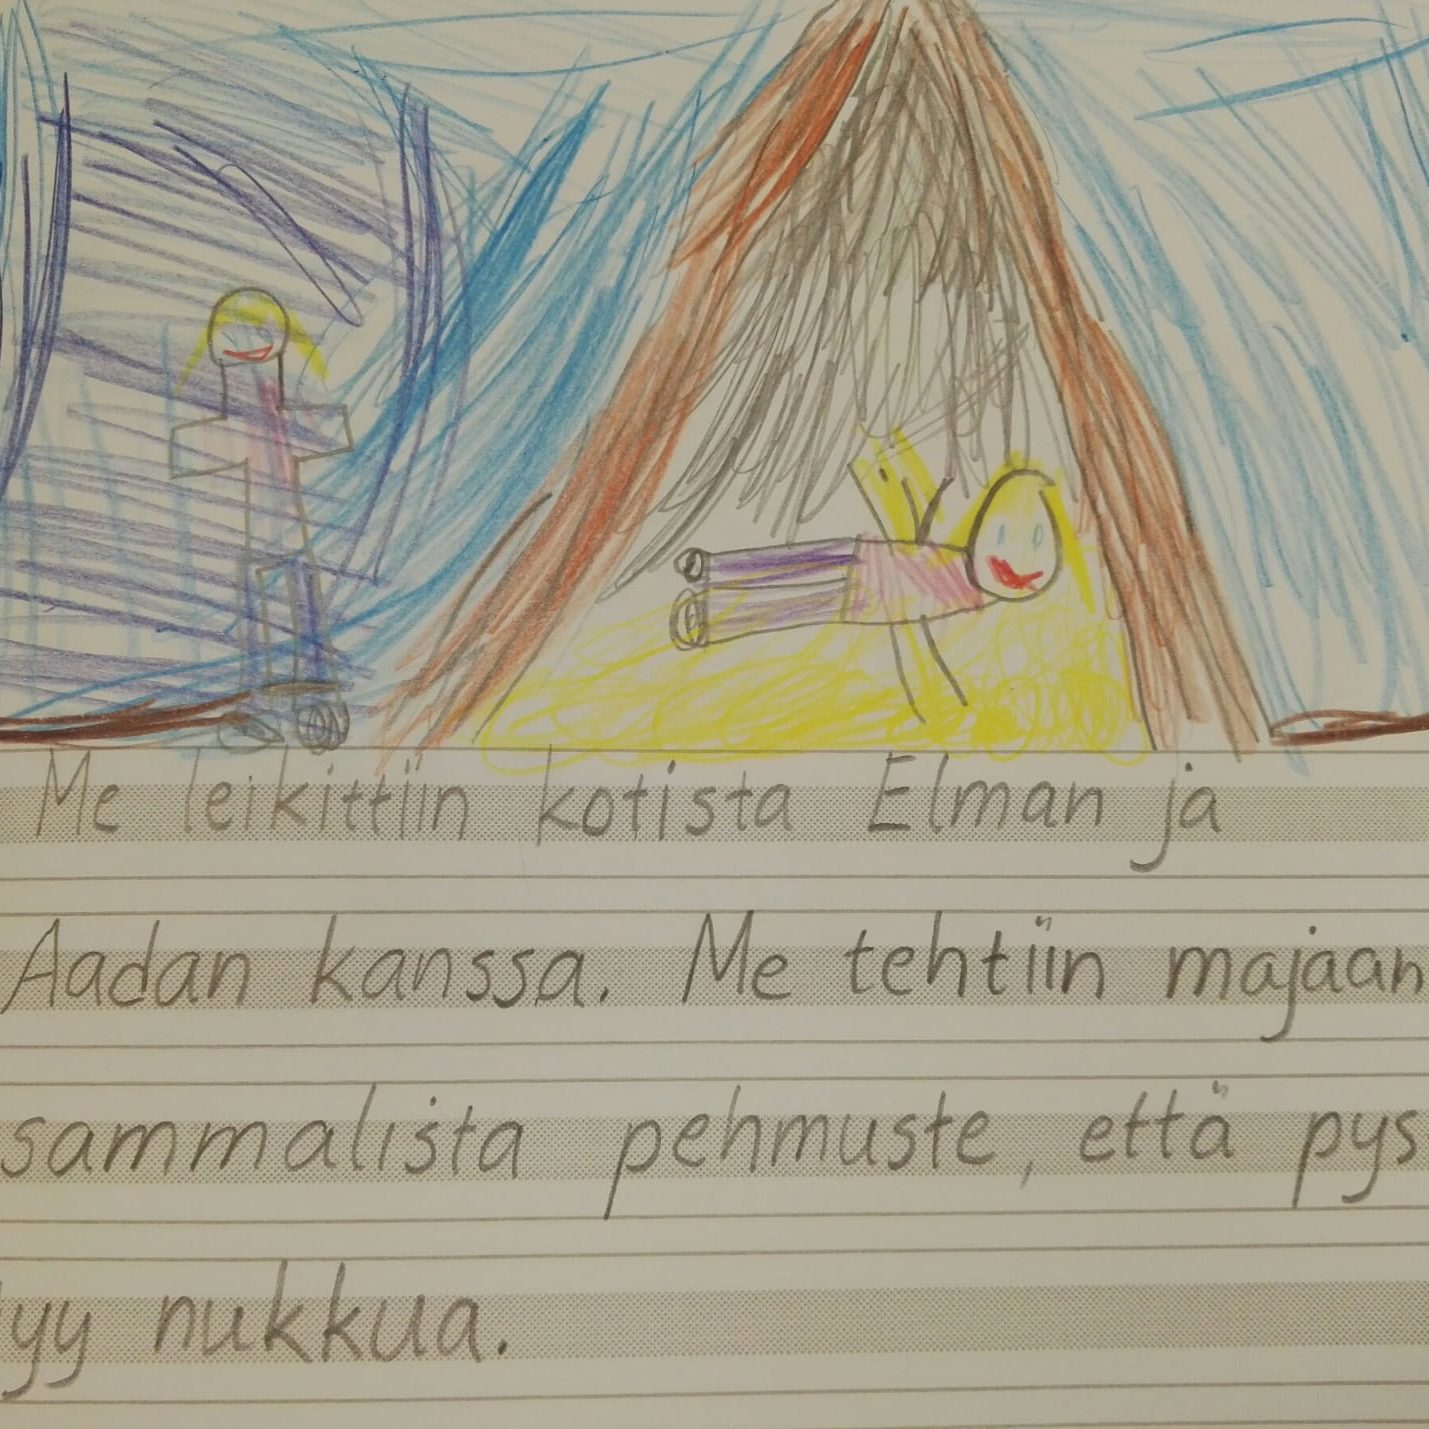 Me leikittiin kotista Elman ja
Aadan kanssa. Me tehtiin majaan
sammalista pehmuste, että pys
tyy nukkua.